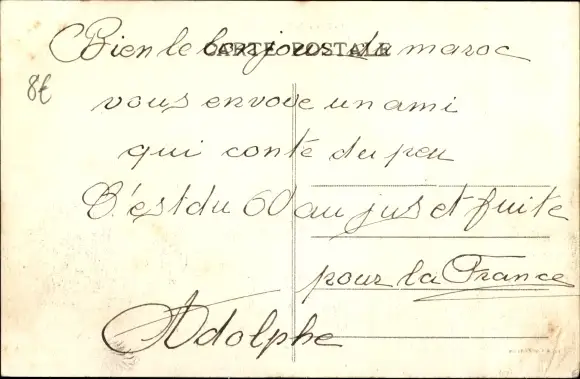 CARTE POSTALE
Bien le bonjour du maroc
8€
vous envoie un ami
qui conte du peu
C'est du 60 au jus et fuite
pour la France
Adolphe